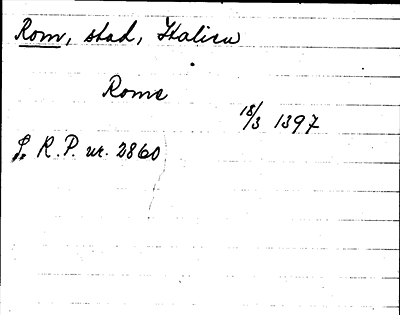 Rom, stad, Italien
Rome
18/3 1397
S. R. P. nr. 2860